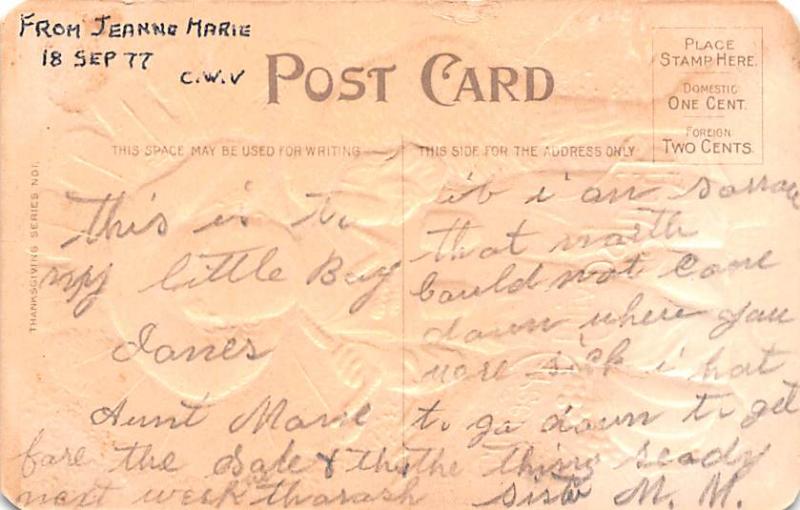 FROM JEANNE MARIE
18 SEP 77
C.W.V
POST CARD
PLACE
STAMP HERE.
DOMESTIC
ONE CENT.
FOREIGN
TWO CENTS.
THIS SPACE MAY BE USED FOR WRITING
THIS SIDE FOR THE ADDRESS ONLY
THANKSGIVING SERIES NO1.
This is to
my little Boy
Janes
Aunt Marie
i an sorrow
that
Could not Come
down where you
were sick i hat
to go down to get
the thing ready
fore the sale &
next week tharash
Sister M. M.